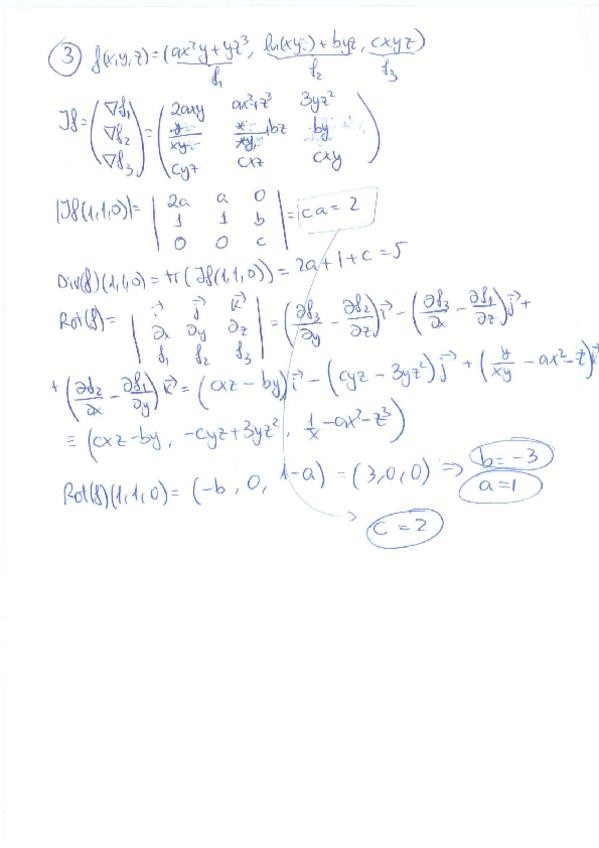 ③ f(x,y,z) = (ax²y + yz³, ln(xy) + byz, cxyz)
f₁ f₂ f₃
Jf = (∇f₁ ∇f₂ ∇f₃) = (2axy ax²+z³ 3yz²
y/xy x/xy + bz by
cyz cxz cxy)
|Jf(1,1,0)| = | 2a a 0
1 1 b
0 0 c | = ca = 2
Div(f)(1,1,0) = tr(Jf(1,1,0)) = 2a + 1 + c = 5
Rot(f) = | i⃗ j⃗ k⃗
∂x ∂y ∂z
f₁ f₂ f₃ | = (∂f₃/∂y − ∂f₂/∂z) i⃗ − (∂f₃/∂x − ∂f₁/∂z) j⃗ +
+ (∂f₂/∂x − ∂f₁/∂y) k⃗ = (cxz − by) i⃗ − (cyz − 3yz²) j⃗ + (y/xy − ax² − z³) k⃗
≡ (cxz − by, −cyz + 3yz², 1/x − ax² − z³)
Rot(f)(1,1,0) = (−b, 0, 1−a) = (3,0,0) ⇒ b = −3
a = 1
c = 2